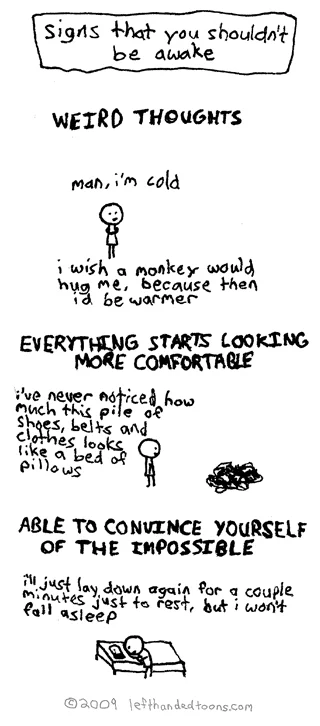 signs that you shouldn't
be awake
WEIRD THOUGHTS
man, i'm cold
i wish a monkey would
hug me, because then
i'd be warmer
EVERYTHING STARTS LOOKING
MORE COMFORTABLE
i've never noticed how
much this pile of
shoes, belts and
clothes looks
like a bed of
pillows
ABLE TO CONVINCE YOURSELF
OF THE IMPOSSIBLE
i'll just lay down again for a couple
minutes just to rest, but i won't
fall asleep
©2009 lefthandedtoons.com